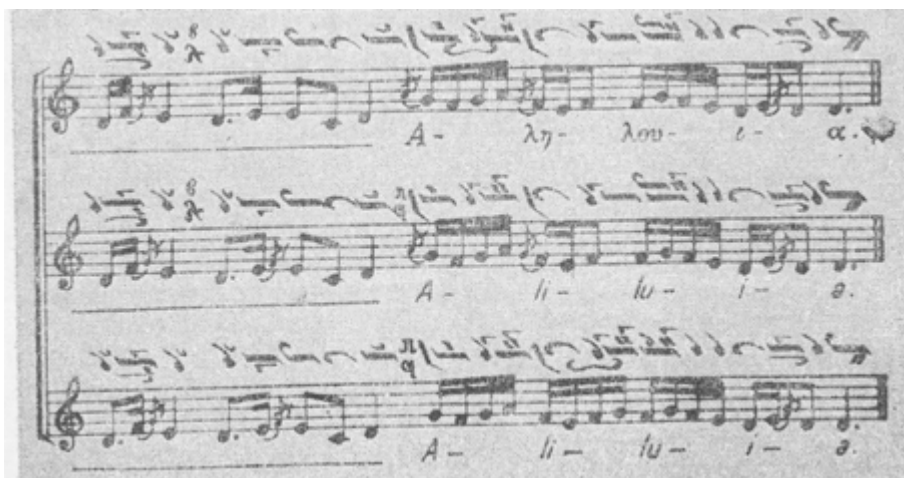 Α- λη- λου- ι- α.
A- li- lu- i- a.
A- li- lu- i- a.